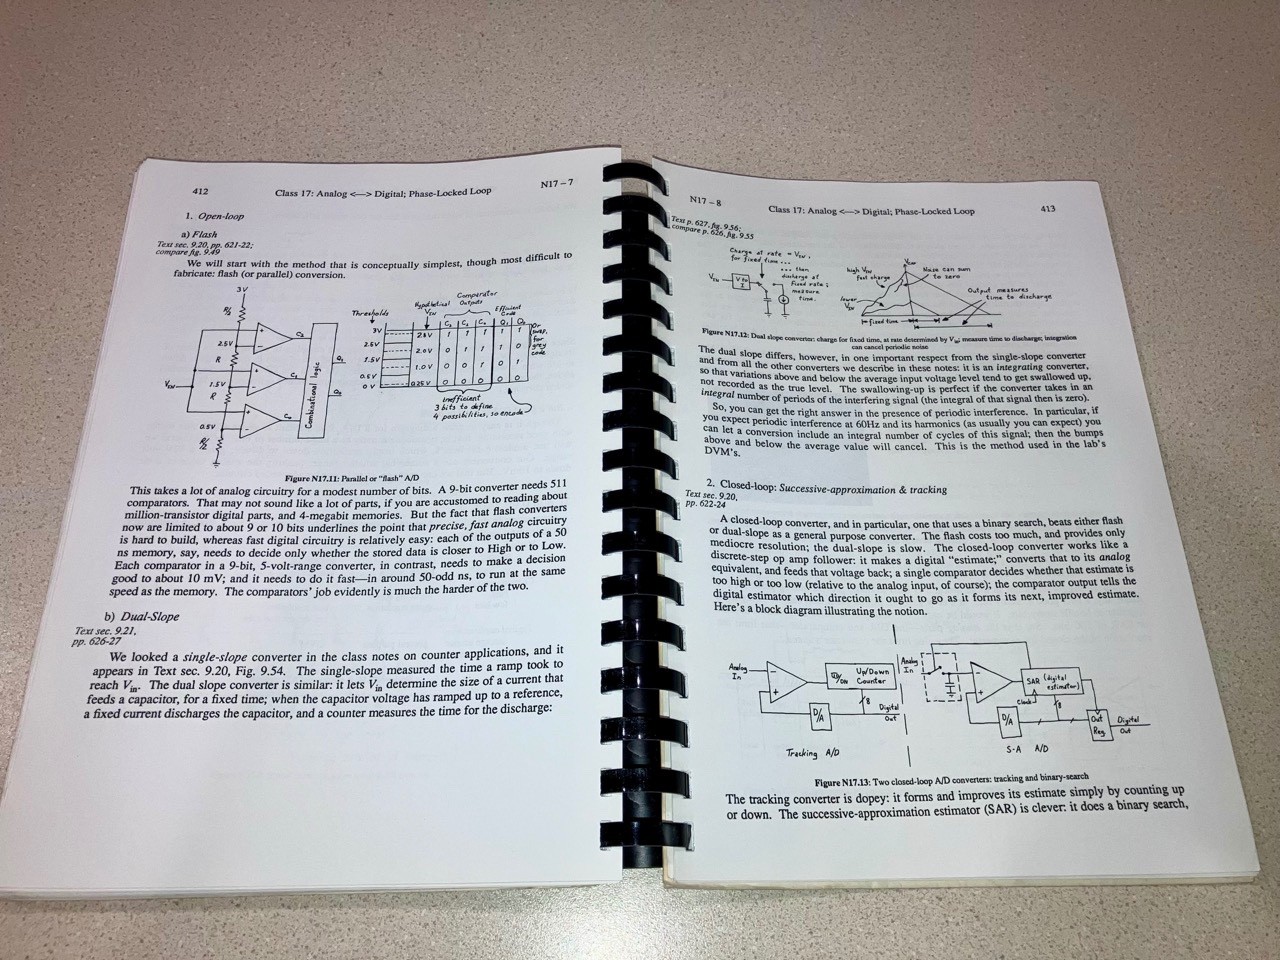 412
Class 17: Analog <—> Digital; Phase-Locked Loop
N17 – 7
1. Open-loop
a) Flash
Text sec. 9.20, pp. 621-22;
compare fig. 9.49
We will start with the method that is conceptually simplest, though most difficult to
fabricate: flash (or parallel) conversion.
3V
R/2
2.5V
R
1.5V
R
0.5V
R/2
VIN
C2
C1
C0
Combinational logic
Q1
Q0
Thresholds
Hypothetical
VIN
Comparator
Outputs
Efficient
Code
3V
2.5V
1.5V
0.5V
0V
2.8V 1 1 1 1 1
2.0V 0 1 1 1 0
1.0V 0 0 1 0 1
0.25V 0 0 0 0 0
or
swap,
for
grey
code
inefficient
3 bits to define
4 possibilities, so encode
Figure N17.11: Parallel or "flash" A/D
This takes a lot of analog circuitry for a modest number of bits. A 9-bit converter needs 511
comparators. That may not sound like a lot of parts, if you are accustomed to reading about
million-transistor digital parts, and 4-megabit memories. But the fact that flash converters
now are limited to about 9 or 10 bits underlines the point that precise, fast analog circuitry
is hard to build, whereas fast digital circuitry is relatively easy: each of the outputs of a 50
ns memory, say, needs to decide only whether the stored data is closer to High or to Low.
Each comparator in a 9-bit, 5-volt-range converter, in contrast, needs to make a decision
good to about 10 mV; and it needs to do it fast—in around 50-odd ns, to run at the same
speed as the memory. The comparators' job evidently is much the harder of the two.
b) Dual-Slope
Text sec. 9.21,
pp. 626-27
We looked a single-slope converter in the class notes on counter applications, and it
appears in Text sec. 9.20, Fig. 9.54. The single-slope measured the time a ramp took to
reach Vin. The dual slope converter is similar: it lets Vin determine the size of a current that
feeds a capacitor, for a fixed time; when the capacitor voltage has ramped up to a reference,
a fixed current discharges the capacitor, and a counter measures the time for the discharge:
N17 – 8
Class 17: Analog <—> Digital; Phase-Locked Loop
413
Text p. 627, fig. 9.56;
compare p. 626, fig. 9.55
Charge at rate ∝ VIN,
for fixed time...
... then
discharge at
fixed rate;
measure
time.
VIN
V to I
high VIN
fast charge
lower
VIN
VCAP
Noise can sum
to zero
Output measures
time to discharge
fixed time
Figure N17.12: Dual slope converter: charge for fixed time, at rate determined by Vin; measure time to discharge; integration
can cancel periodic noise
The dual slope differs, however, in one important respect from the single-slope converter
and from all the other converters we describe in these notes: it is an integrating converter,
so that variations above and below the average input voltage level tend to get swallowed up,
not recorded as the true level. The swallowing-up is perfect if the converter takes in an
integral number of periods of the interfering signal (the integral of that signal then is zero).
So, you can get the right answer in the presence of periodic interference. In particular, if
you expect periodic interference at 60Hz and its harmonics (as usually you can expect) you
can let a conversion include an integral number of cycles of this signal; then the bumps
above and below the average value will cancel. This is the method used in the lab's
DVM's.
2. Closed-loop: Successive-approximation & tracking
Text sec. 9.20,
pp. 622-24
A closed-loop converter, and in particular, one that uses a binary search, beats either flash
or dual-slope as a general purpose converter. The flash costs too much, and provides only
mediocre resolution; the dual-slope is slow. The closed-loop converter works like a
discrete-step op amp follower: it makes a digital "estimate;" converts that to its analog
equivalent, and feeds that voltage back; a single comparator decides whether that estimate is
too high or too low (relative to the analog input, of course); the comparator output tells the
digital estimator which direction it ought to go as it forms its next, improved estimate.
Here's a block diagram illustrating the notion.
Analog
In
U/DN
Up/Down
Counter
8
D/A
Digital
Out
Tracking A/D
Analog
In
SAR (digital
estimator)
Clock
8
D/A
Out
Reg.
Digital
Out
S-A A/D
Figure N17.13: Two closed-loop A/D converters: tracking and binary-search
The tracking converter is dopey: it forms and improves its estimate simply by counting up
or down. The successive-approximation estimator (SAR) is clever: it does a binary search,